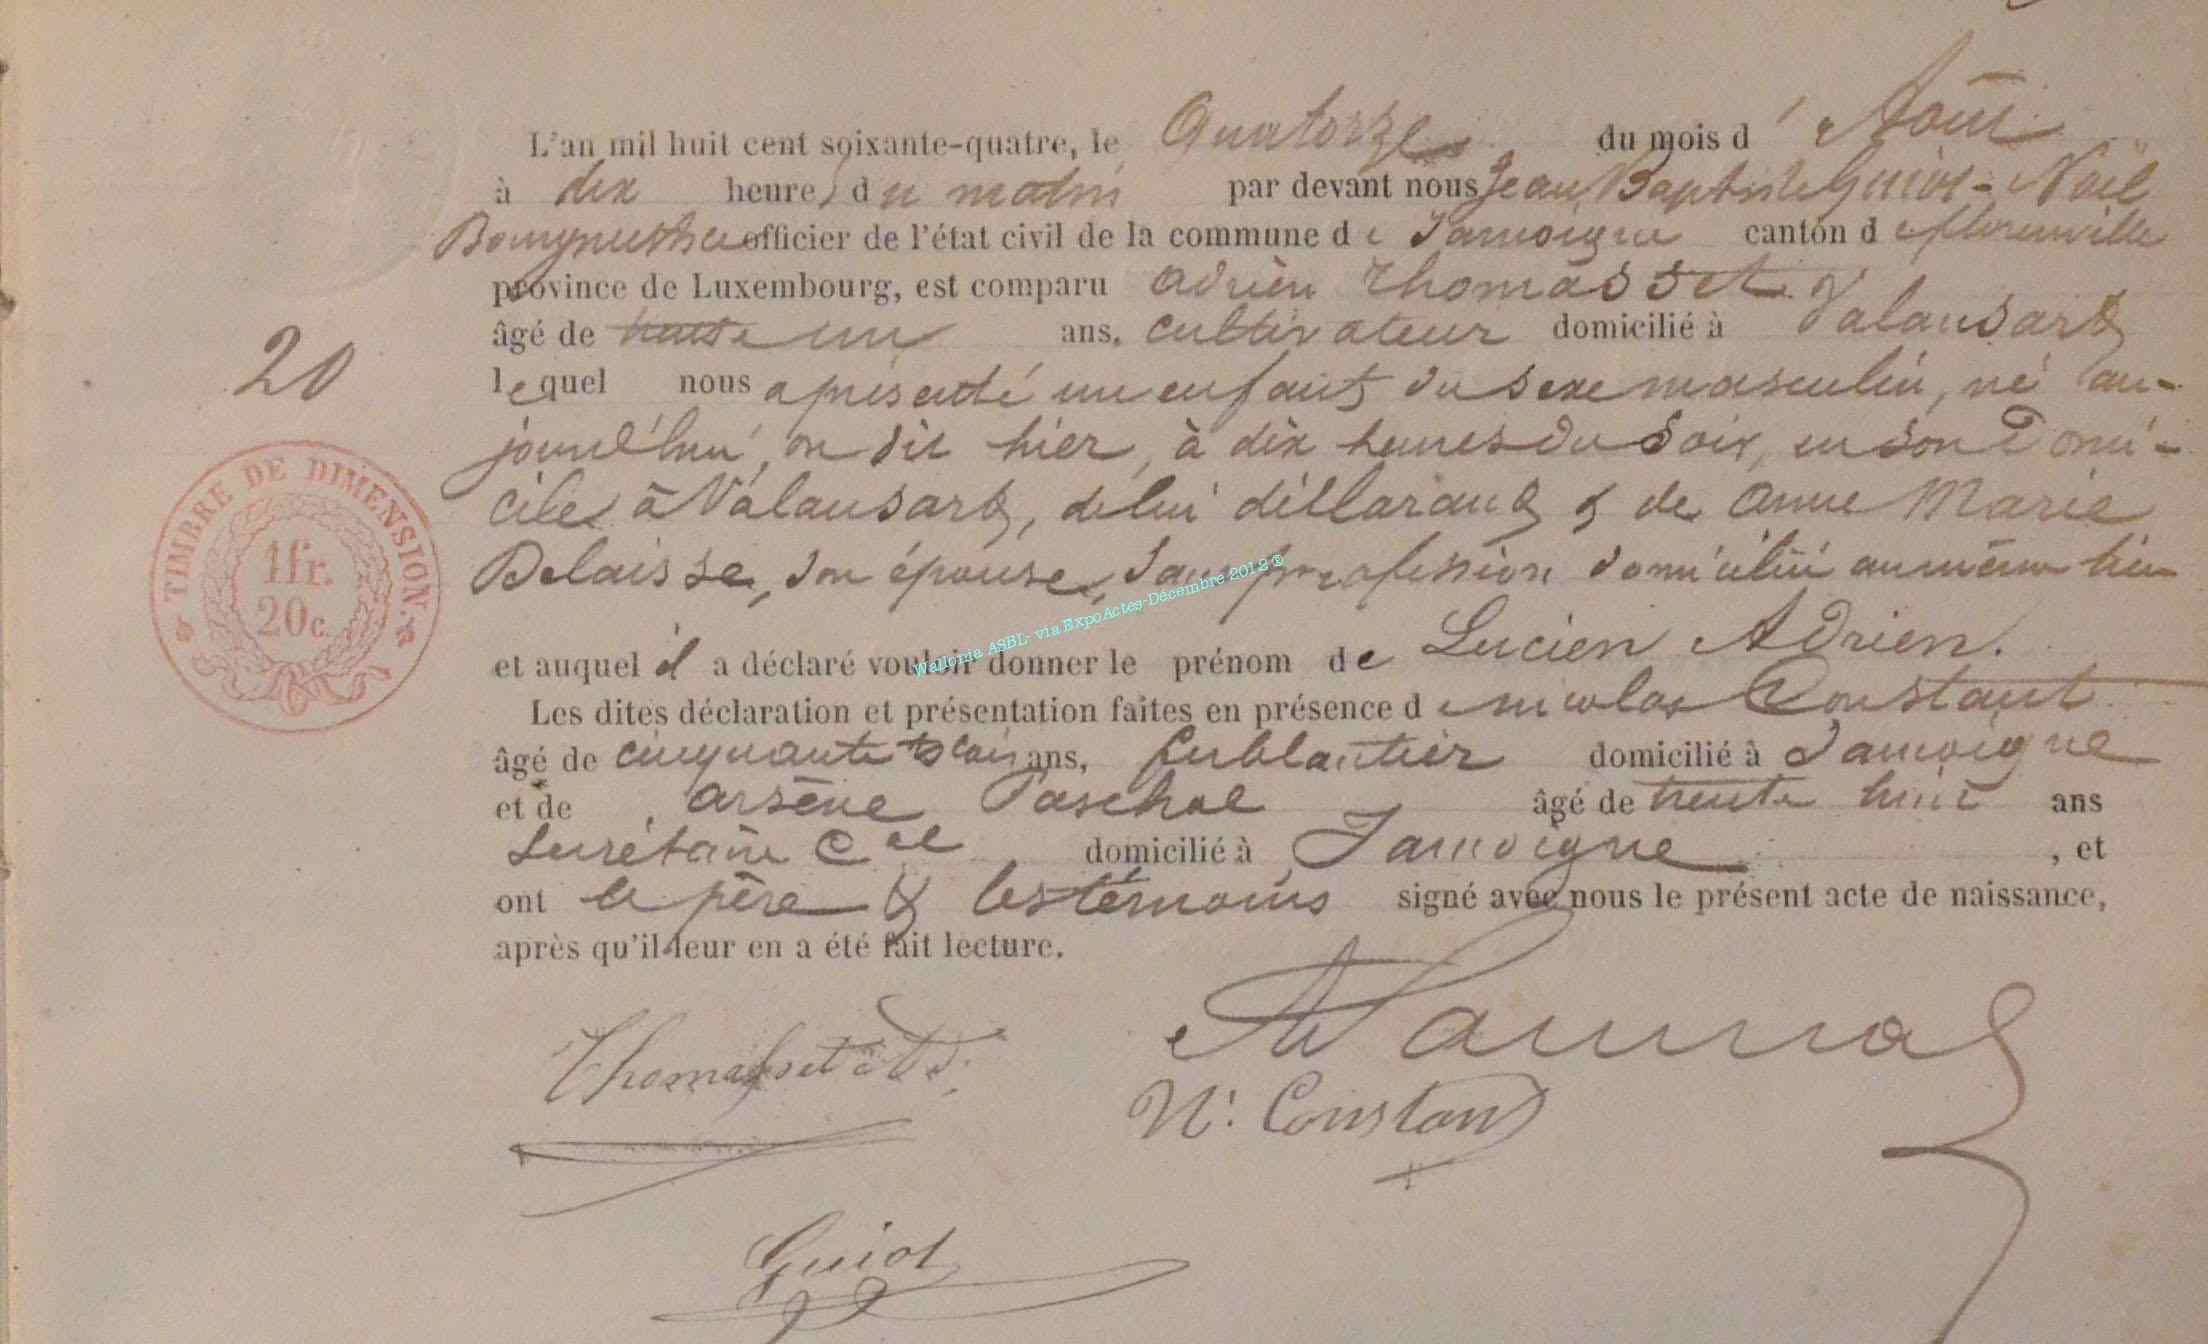 L'an mil huit cent soixante-quatre, le Quatorze du mois d' Août
à dix heures du matin par devant nous Jean Baptiste Guiot - Noël
officier de l'état civil de la commune de Jamoigne canton de florenville
province de Luxembourg, est comparu Adrien Thomasset
âgé de trente un ans, cultivateur domicilié à Valansart
lequel nous a présenté un enfant du sexe masculin, né au-
jourd'hui, on dit hier, à dix heures du soir, en son domi-
cile à Valansart, de lui déclarant & de Anne Marie
Delaisse, son épouse, sans profession domiciliée au même lieu
et auquel il a déclaré vouloir donner le prénom de Lucien Adrien.
Les dites déclaration et présentation faites en présence de Nicolas Constant
âgé de cinquante trois ans, ferblantier domicilié à Jamoigne
et de Arsène Paschal âgé de trente huit ans
Secrétaire Cal domicilié à Jamoigne, et
ont le père & les témoins signé avec nous le présent acte de naissance,
après qu'il leur en a été fait lecture.
20
TIMBRE DE DIMENSION
1fr.
20c.
Wallonia ASBL- via ExpoActes-Décembre 2012®
Thomasset
N: Constant
Guiot